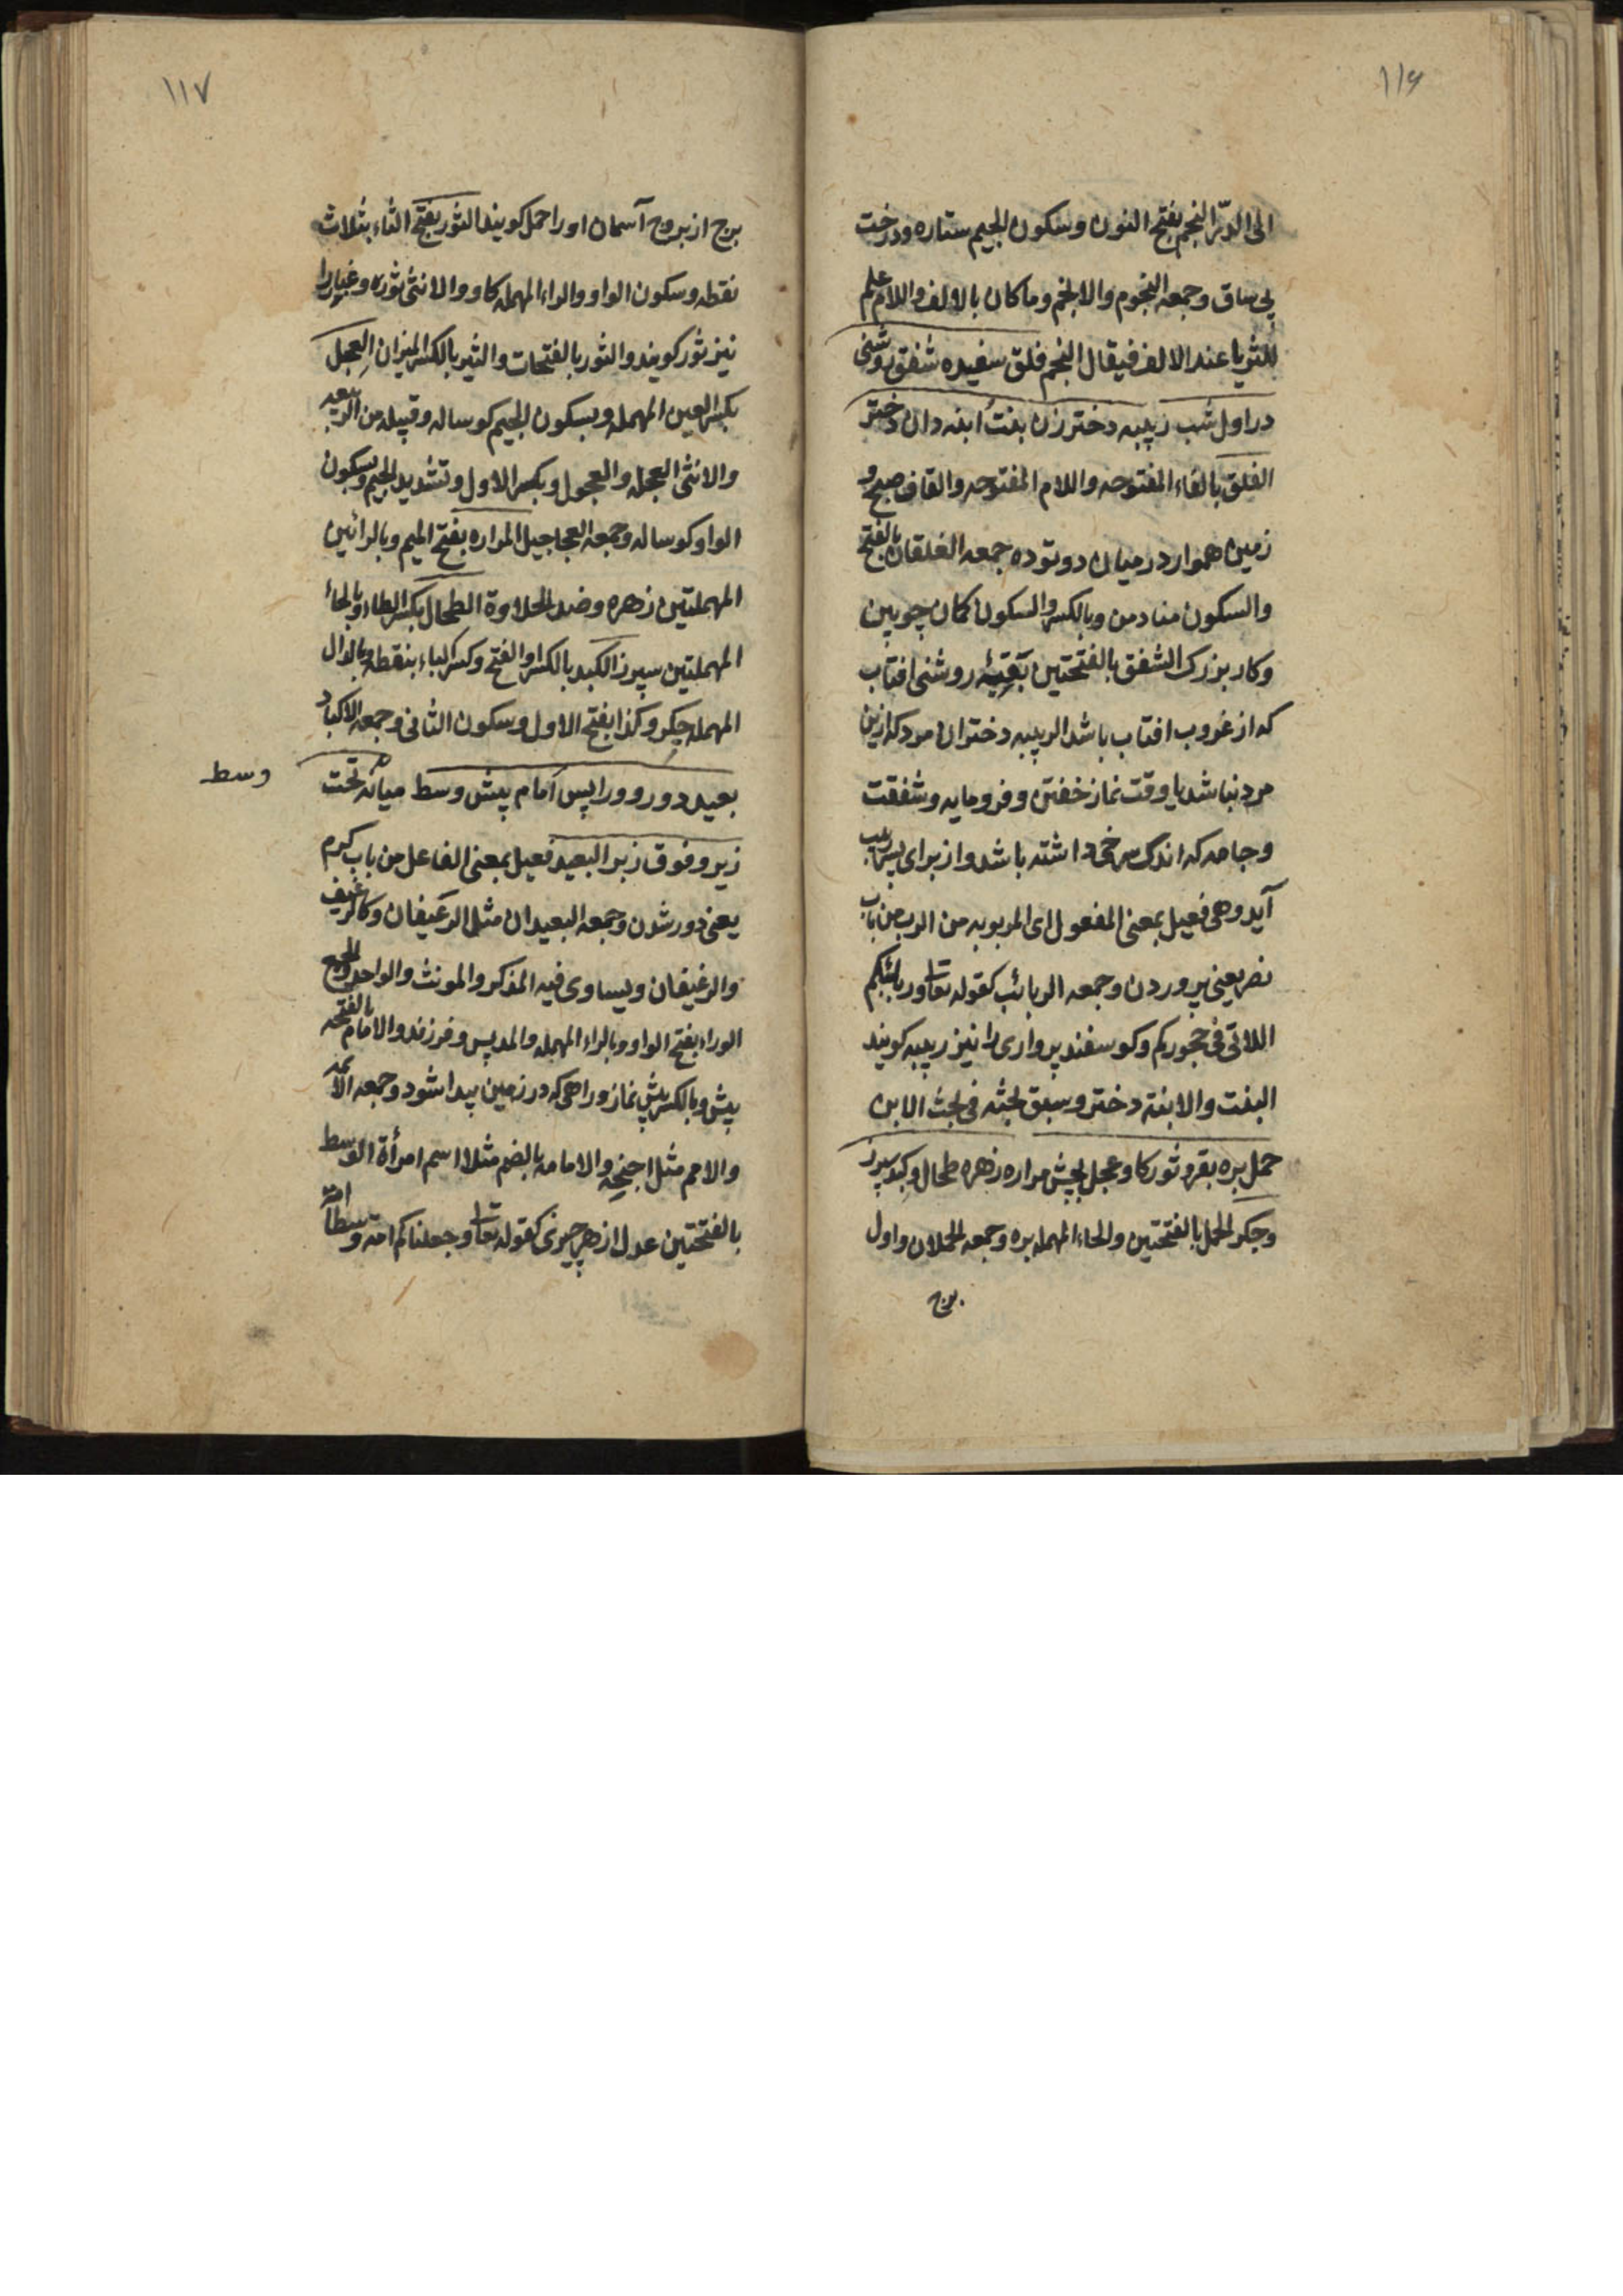 ۱۱۶
الی الدرّ النجم بفتح النون وسکون الجیم ستاره ودرخت
بی ساق وجمعه النجوم والانجم وما کان بالالف واللام علم
للثریا عند الالف فیقال النجم فلق سفیده شفق روشنی
در اول شب ربیبه دختر زن بنت ابنه دان دختر
الفلق بالفاء المفتوحه واللام المفتوحه والقاف صبح و
زمین هموار در میان دو توده جمعه الفلقان بالفتح
والسکون منادمن وبالکسر والسکون کمان چوبین
وکار بزرک الشفق بالفتحتین بقیهٔ روشنی افتاب
که از غروب افتاب باشد الربیبه دختر ان مرد که ازین
مرد نباشد یا وقت نماز خفتن وفرومایه وشفقت
وجامه که اندک سرخی داشته باشد واز برای پسر ربیب
آید وهی فعیل بمعنی المفعول ای المربوبه من الرب من باب
نصر یعنی پروردن وجمعه الربائب کقوله تعا وربائبکم
اللاتی فی حجورکم وکوسفند پرواری را نیز ربیبه کویند
البنت والابنة دختر وسبق بحثه فی بحث الابن
حمل بره بقر وثور کاو عجل بچش مراره زهره طحال وکبد سپرز
وجکر الحمل بالفتحتین والحاء المهمله بره وجمعه الحملان واول
برج
۱۱۷
برج از بروج آسمان اورا حمل کویند الثور بفتح الثاء بثلاث
نقطه وسکون الواو والراء المهمله کاو والانثی ثوره وغبار را
نیز ثور کویند والثور بالفتحات والثیر بالکسر المیزان العجل
بکسر العین المهمله وبسکون الجیم کوساله وقبیله من الربیعه
والانثی العجله والعجول وبکسر الاول وتشدید الجیم وسکون
الواو کوساله وجمعه العجاجیل المراره بفتح المیم وبالرائین
المهملتین زهره وضد الحلاوة الطحال بکسر الطاء وبالحاء
المهملتین سپرز الکبد بالکسر او الفتح وکسر الباء بنقطه وبالدال
المهمله جکر وکذا بفتح الاول وسکون الثانی وجمعه الاکباد
بعید دور وورا پس امام پیش وسط میانه تحت
وسط
زیر وفوق زبر البعید فعیل بمعنی الفاعل من باب کرم
یعنی دور شدن وجمعه البعیدان مثل الرغیفان وکالرغیف
والرغیفان ویساوی فیه المذکر والمونث والواحد والجمع
الوراء بفتح الواو وبالراء المهمله والمد پس وفرزند والامام بالفتحه
پیش وبالکسر پیش نماز وراهی که در زمین پیدا شود وجمعه الائمه
والامم مثل اجنحه والامامه بالضم مثلا اسم امرأة الوسط
بالفتحتین عدل از هر چیزی کقوله تعا وجعلناکم امة وسطاً